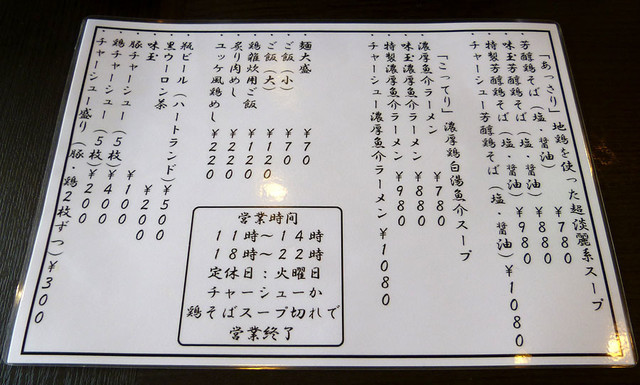 「あっさり」地鶏を使った超淡麗系スープ
芳醇鶏そば(塩・醤油) ¥780
味玉芳醇鶏そば(塩・醤油) ¥880
特製芳醇鶏そば(塩・醤油) ¥980
チャーシュー芳醇鶏そば(塩・醤油)¥1080
「こってり」濃厚鶏白湯魚介スープ
濃厚魚介ラーメン ¥780
味玉濃厚魚介ラーメン ¥880
特製濃厚魚介ラーメン ¥980
チャーシュー濃厚魚介ラーメン ¥1080
麺大盛 ¥70
ご飯(小) ¥70
ご飯(大) ¥120
鶏雑炊用ご飯 ¥120
炙り肉めし ¥220
ユッケ風鶏めし ¥220
瓶ビール(ハートランド)¥500
黒ウーロン茶 ¥200
味玉 ¥100
豚チャーシュー(5枚)¥400
鶏チャーシュー(5枚)¥200
チャーシュー盛り(豚・鶏2枚ずつ)¥300
営業時間
11時~14時
18時~22時
定休日:火曜日
チャーシューか
鶏そばスープ切れで
営業終了